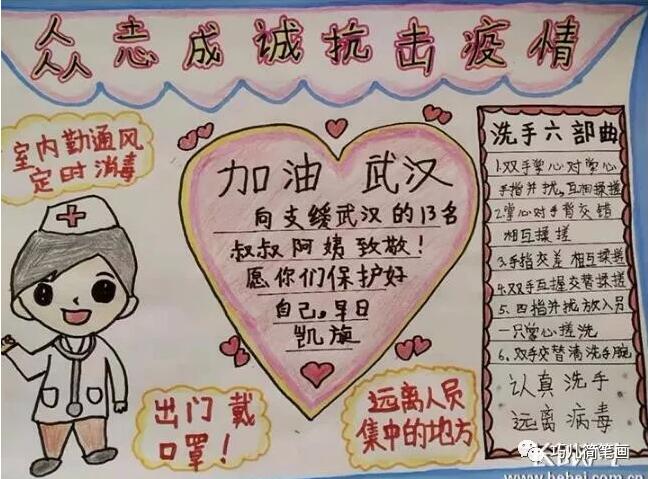 众志成诚抗击疫情
室内勤通风
定时消毒
加油 武汉
向支缓武汉的13名
叔叔阿姨致敬!
愿你们保护好
自己,早日
凯旋
出门戴
口罩!
远离人员
集中的地方
洗手六部曲
1.双手掌心对掌心
手指并拢,互相揉搓
2.掌心对手背交错
相互揉搓
3.手指交差相互揉搓
4.双手互握交替揉搓
5.四指并拢放入另
一只掌心搓洗
6.双手交替清洗手腕
认真洗手
远离病毒
巧儿简笔画
www.hebei.com.cn